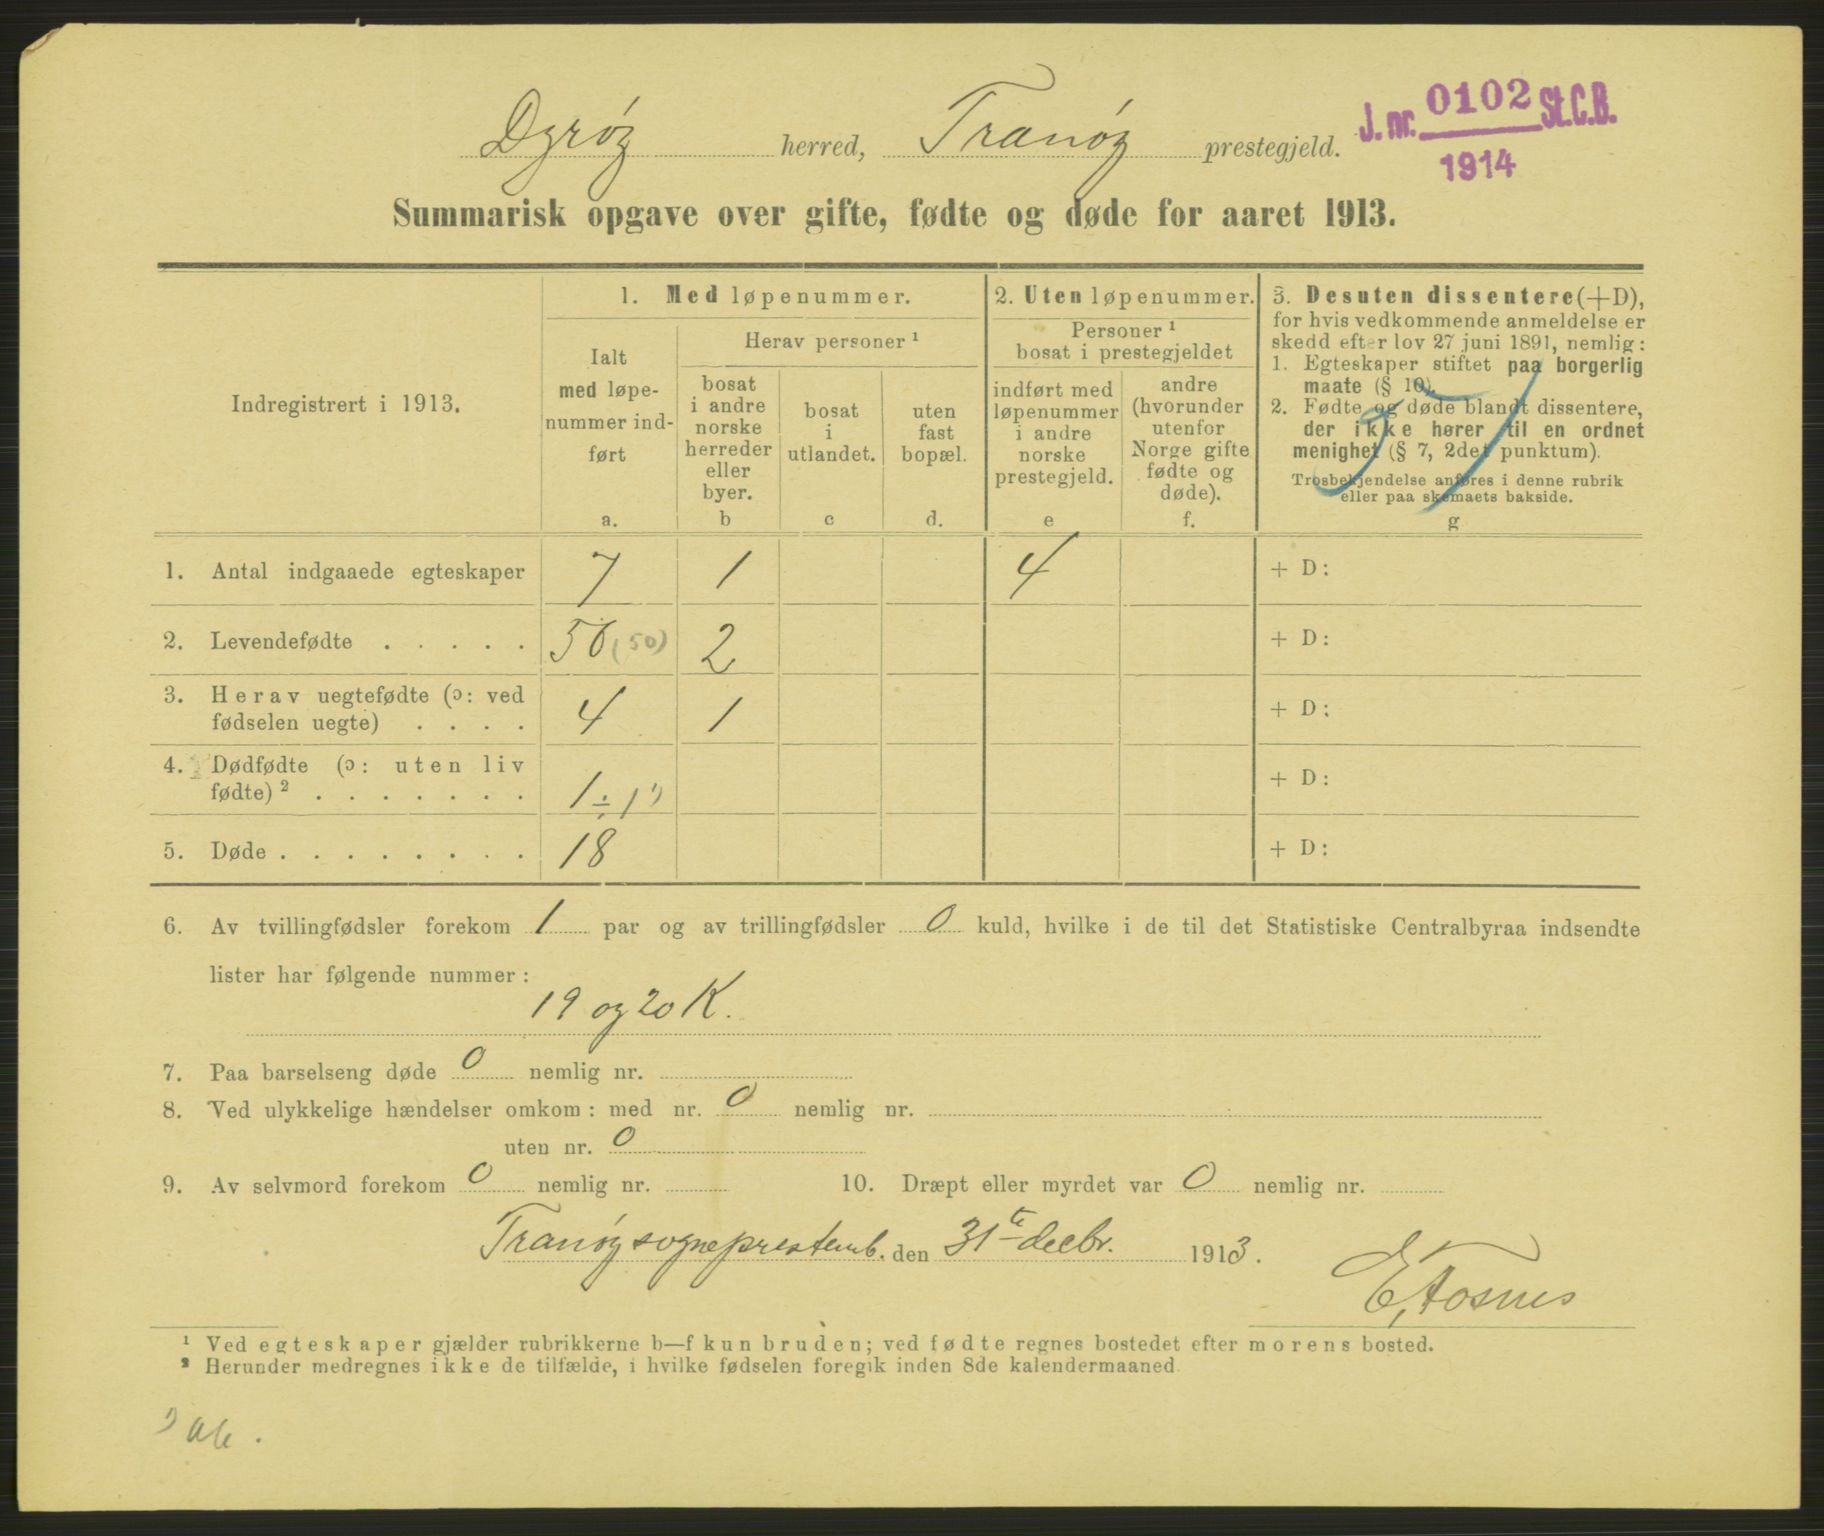 Dyrøy herred, Tranøy prestegjeld.
J. nr. 0102 St.C.B.
1914
Summarisk opgave over gifte, fødte og døde for aaret 1913.
Indregistrert i 1913.
1. Med løpenummer.
Ialt
med løpe-
nummer ind-
ført
a.
Herav personer ¹
bosat
i andre
norske
herreder
eller
byer.
b
bosat
i
utlandet.
c
uten
fast
bopæl.
d.
2. Uten løpenummer.
Personer ¹
bosat i prestegjeldet
indført med
løpenummer
i andre
norske
prestegjeld.
e
andre
(hvorunder
utenfor
Norge gifte
fødte og
døde).
f.
3. Desuten dissentere (+D),
for hvis vedkommende anmeldelse er
skedd efter lov 27 juni 1891, nemlig:
1. Egteskaper stiftet paa borgerlig
maate (§ 10).
2. Fødte og døde blandt dissentere,
der ikke hører til en ordnet
menighet (§ 7, 2det punktum).
Trosbekjendelse anføres i denne rubrik
eller paa skemaets bakside.
g
1. Antal indgaaede egteskaper 7 1 4 + D:
2. Levendefødte . . . . . 56 (50) 2 + D:
3. Herav uegtefødte (ɔ: ved
fødselen uegte) . . . . 4 1 + D:
4. Dødfødte (ɔ: uten liv
fødte) ² . . . . . . . 1 ÷ 1 ¹) + D:
5. Døde . . . . . . . . 18 + D:
6. Av tvillingfødsler forekom 1 par og av trillingfødsler 0 kuld, hvilke i de til det Statistiske Centralbyraa indsendte
lister har følgende nummer:
19 og 20 K.
7. Paa barselseng døde 0 nemlig nr.
8. Ved ulykkelige hændelser omkom: med nr. 0 nemlig nr.
uten nr. 0
9. Av selvmord forekom 0 nemlig nr. 10. Dræpt eller myrdet var 0 nemlig nr.
Tranøy sogneprestemb. den 31te decbr. 1913.
E. Fosnes
¹ Ved egteskaper gjælder rubrikkerne b—f kun bruden; ved fødte regnes bostedet efter morens bosted.
² Herunder medregnes ikke de tilfælde, i hvilke fødselen foregik inden 8de kalendermaaned